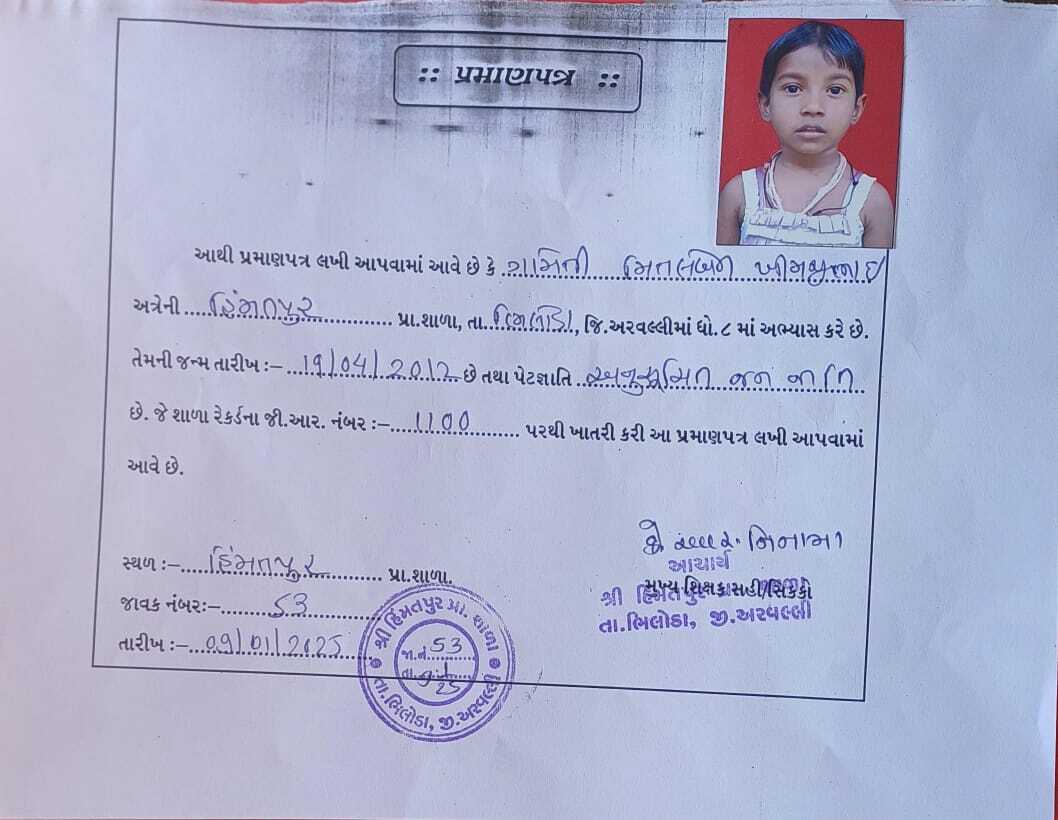 :: પ્રમાણપત્ર ::
આથી પ્રમાણપત્ર લખી આપવામાં આવે છે કે
અત્રેની હિંમતપુર પ્રા.શાળા, તા. ભિલોડા, જિ.અરવલ્લીમાં ધો.૮ માં અભ્યાસ કરે છે.
તેમની જન્મ તારીખ :– 19/04/2012 છે તથા પેટજ્ઞાતિ અનુસૂચિત જન જાતિ
છે. જે શાળા રેકર્ડના જી.આર. નંબર :– 1100 પરથી ખાતરી કરી આ પ્રમાણપત્ર લખી આપવામાં
આવે છે.
સ્થળ :– હિંમતપુર પ્રા.શાળા.
જાવક નંબરઃ– 53
તારીખ :– 09/01/2025
નિનામા
આચાર્ય
મુખ્ય શિક્ષક સહી/સિક્કો
શ્રી હિંમતપુર
તા.ભિલોડા, જી.અરવલ્લી
શ્રી હિંમતપુર પ્રા. શાળા
જા.નં. 53
તા.
તા.ભિલોડા, જી.અરવલ્લી